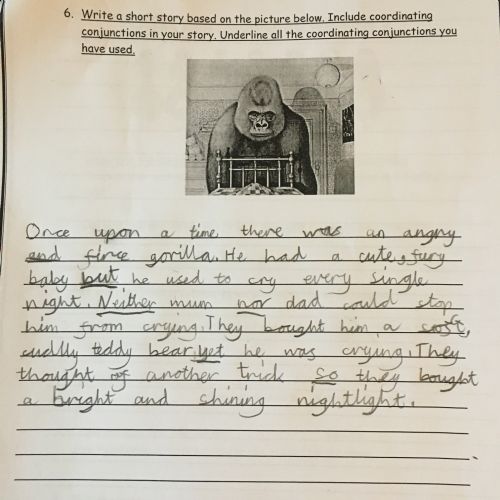 6. Write a short story based on the picture below. Include coordinating
conjunctions in your story. Underline all the coordinating conjunctions you
have used.
Once upon a time there was an angry
and firce gorilla. He had a cute, fury
baby but he used to cry every single
night. Neither mum nor dad could stop
him from crying. They bought him a soft,
cudlly teddy bear, yet he was crying. They
thought of another trick so they bought
a bright and shining nightlight.